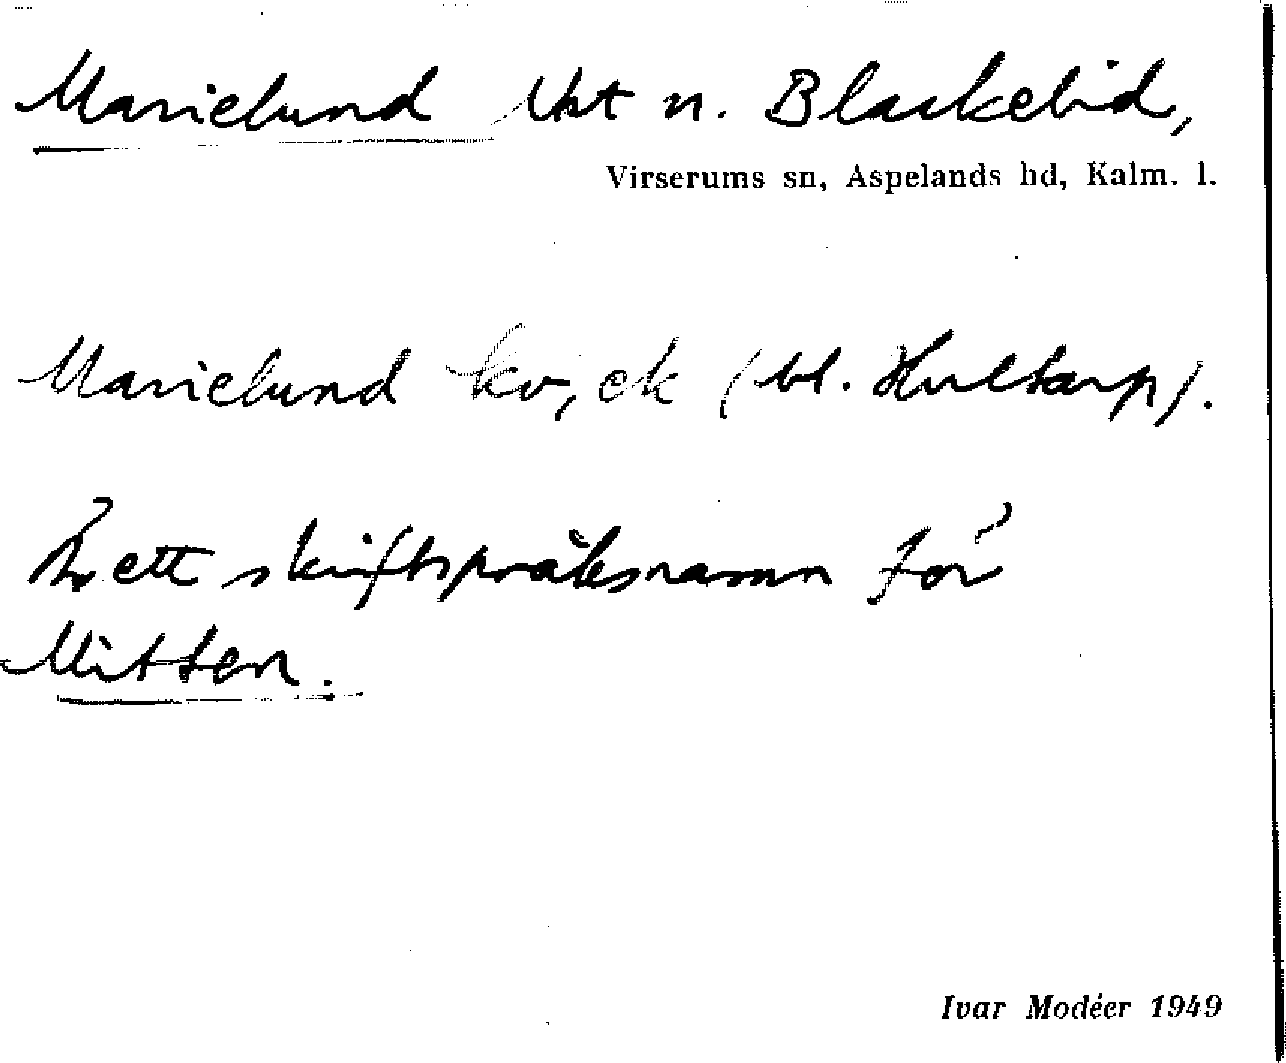 Marielund Uht n. Blackebid,
Virserums sn, Aspelands hd, Kalm. l.
Marielund kv, ek (bl. Hultarp).
Är ett skriftspråksnamn för
Mitten.
Ivar Modéer 1949